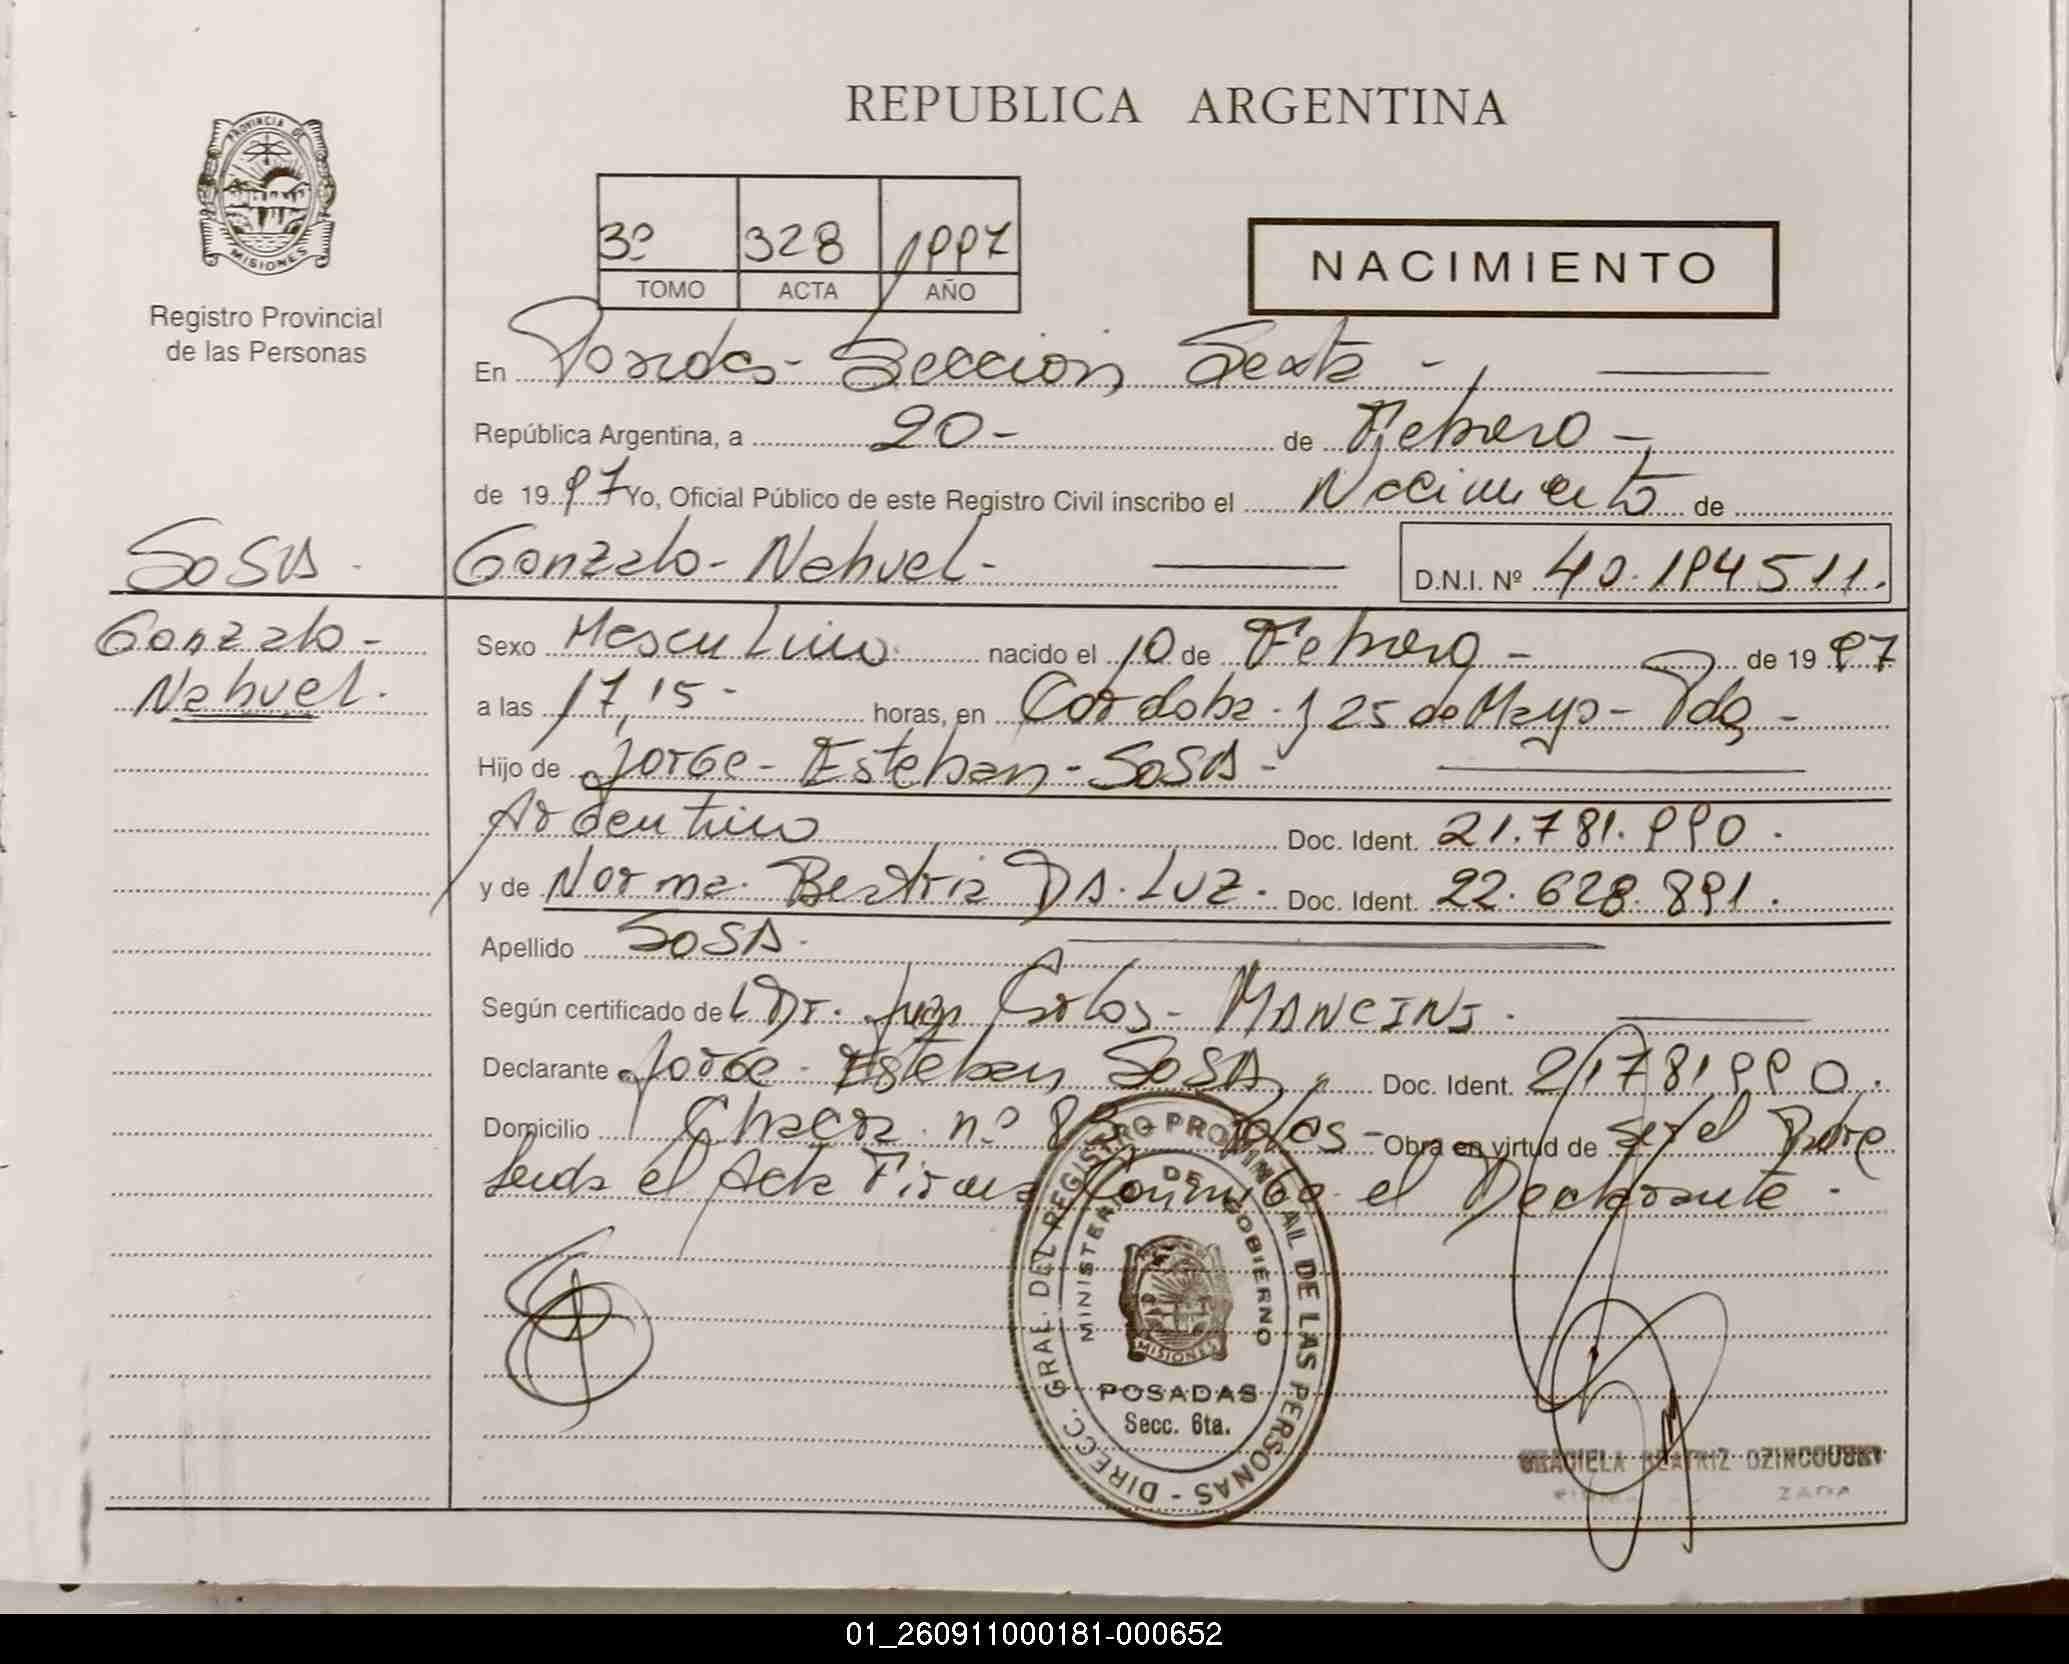 REPUBLICA ARGENTINA
PROVINCIA DE
MISIONES
Registro Provincial
de las Personas
3º 328 1997
TOMO ACTA AÑO
NACIMIENTO
En Posadas - Sección Sexta -
República Argentina, a 20 - de Febrero -
de 1997 Yo, Oficial Público de este Registro Civil inscribo el Nacimiento de
SOSA - Gonzalo - Nahuel - D.N.I. Nº 40.194511.
Gonzalo -
Nahuel.
Sexo Masculino nacido el 10 de Febrero - de 1997
a las 17,15 - horas, en Córdoba y 25 de Mayo - Pdas -
Hijo de Jorge - Esteban - SOSA -
Argentino Doc. Ident. 21.781.990.
y de Norma Beatriz DA. LUZ - Doc. Ident. 22.628.891.
Apellido SOSA.
Según certificado de Dr. Juan Carlos - MANCINI.
Declarante Jorge - Esteban SOSA Doc. Ident. 21781990.
Domicilio Chacra nº Pdas - Obra en virtud de ser el Padre
Leída el Acta Firma Conmigo el Declarante.
DIRECC. GRAL. DEL REGISTRO PROVINCIAL DE LAS PERSONAS -
MINISTERIO DE GOBIERNO
MISIONES
POSADAS
Secc. 6ta.
GRACIELA BEATRIZ DZINCOUSKY
01_260911000181-000652